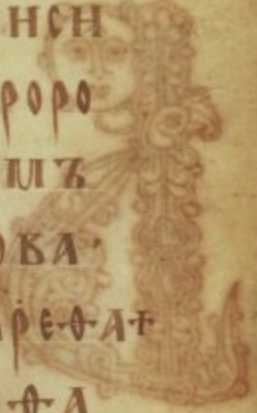 нсн
роро
мъ
ова·
рєѳат
ѳа